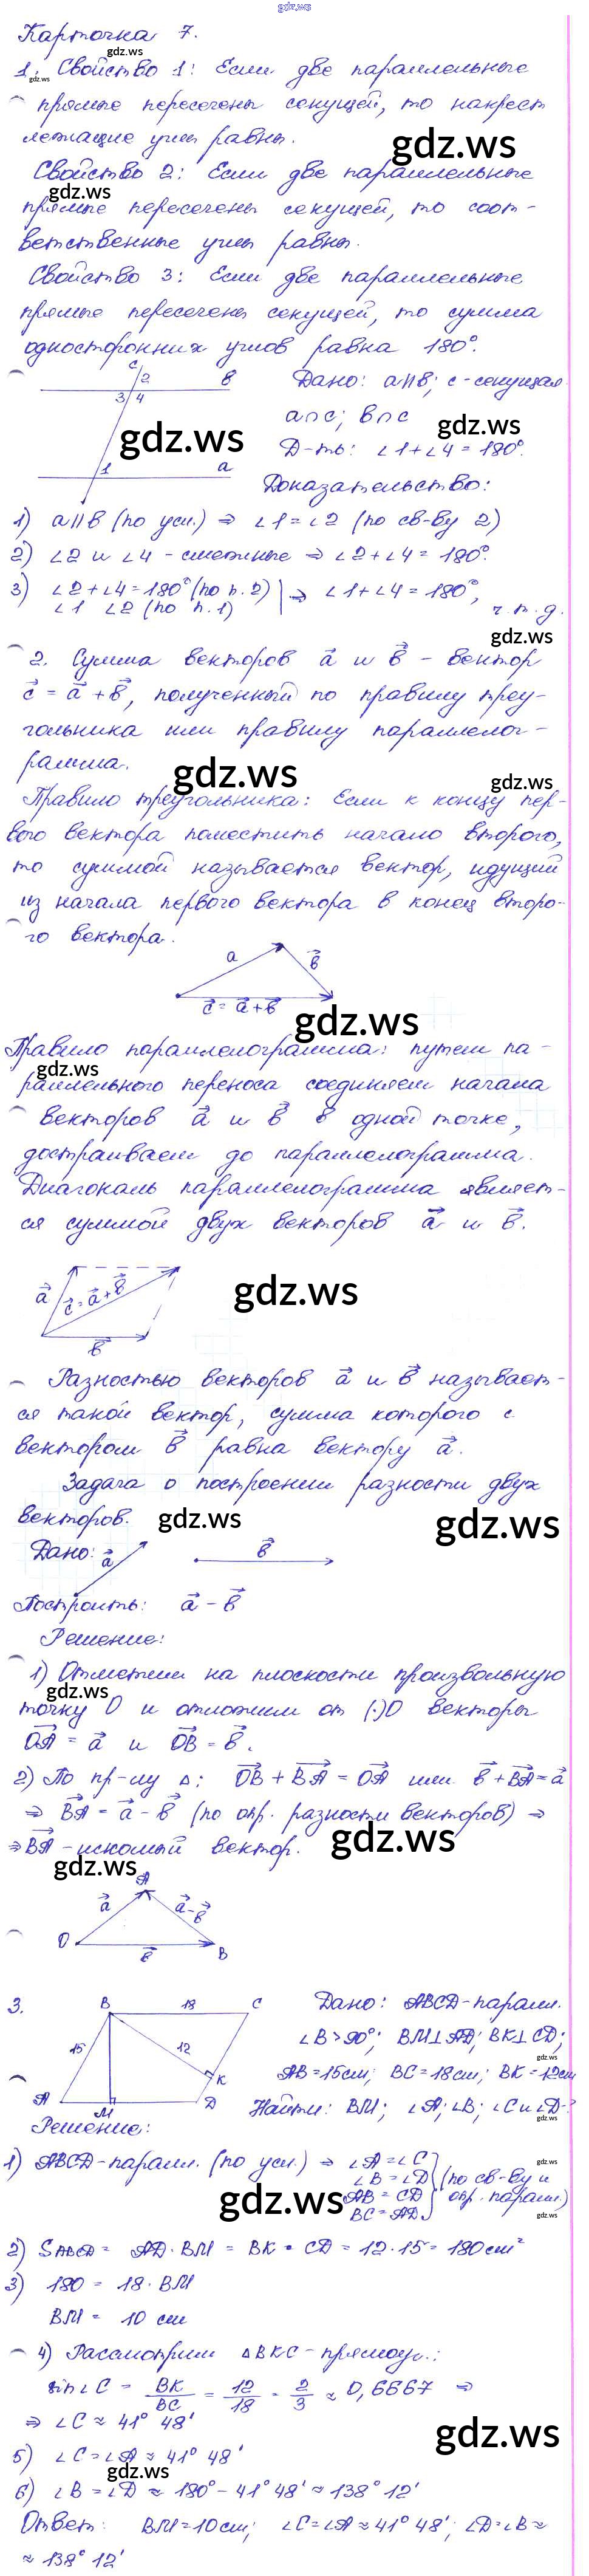 gdz.ws
Карточка 7.
gdz.ws
1. Свойство 1: Если две параллельные
gdz.ws
прямые пересечены секущей, то накрест
лежащие углы равны.
gdz.ws
Свойство 2: Если две параллельные
gdz.ws
прямые пересечены секущей, то соот-
ветственные углы равны.
Свойство 3: Если две параллельные
прямые пересечены секущей, то сумма
односторонних углов равна 180°.
c 2 b
3 4
1 a
Дано: a||b; c - секущая
a∩c; b∩c
gdz.ws
gdz.ws
Д-ть: ∠1+∠4=180°.
Доказательство:
1) a||b (по усл.) ⇒ ∠1=∠2 (по св-ву 2)
2) ∠2 и ∠4 - смежные ⇒ ∠2+∠4=180°.
3) ∠2+∠4=180° (по п.2) | ⇒ ∠1+∠4=180°,
∠1 ∠2 (по п.1)
ч.т.д.
gdz.ws
2. Сумма векторов a⃗ и b⃗ - вектор
c⃗ = a⃗ + b⃗, полученный по правилу треу-
гольника или правилу параллелог-
рамма.
gdz.ws
gdz.ws
Правило треугольника: Если к концу пер-
вого вектора поместить начало второго,
то суммой называется вектор, идущий
из начала первого вектора в конец второ-
го вектора.
a b⃗
c⃗ = a⃗ + b⃗
gdz.ws
Правило параллелограмма: путем па-
gdz.ws
раллельного переноса соединяем начала
векторов a⃗ и b⃗ в одной точке,
достраиваем до параллелограмма.
Диагональ параллелограмма являет-
ся суммой двух векторов a⃗ и b⃗.
a⃗ c⃗ = a⃗ + b⃗
b⃗
gdz.ws
Разностью векторов a⃗ и b⃗ называет-
ся такой вектор, сумма которого с
вектором b⃗ равна вектору a⃗.
Задача о построении разности двух
векторов.
gdz.ws
gdz.ws
Дано: a⃗ b⃗
Построить: a⃗ - b⃗
Решение:
1) Отметим на плоскости произвольную
gdz.ws
точку O и отложим от (·)O векторы
OA⃗ = a⃗ и OB⃗ = b⃗.
2) По пр-лу Δ: OB⃗ + BA⃗ = OA⃗ или b⃗ + BA⃗ = a⃗
⇒ BA⃗ = a⃗ - b⃗ (по опр. разности векторов) ⇒
⇒ BA⃗ - искомый вектор.
gdz.ws
gdz.ws
A
a⃗ a⃗-b⃗
O b⃗ B
3.
B 18 C
15 12
K
A M D
Дано: ABCD - паралл.
∠B>90°; BM⊥AD; BK⊥CD;
gdz.ws
AB=15см; BC=18см; BK=12см
Найти: BM; ∠A; ∠B; ∠C и ∠D-?
gdz.ws
Решение:
1) ABCD - паралл. (по усл.) ⇒ ∠A=∠C
∠B=∠D (по св-ву и
AB=CD опр. паралл.)
BC=AD
gdz.ws
gdz.ws
gdz.ws
2) SABCD = AD·BM = BK·CD = 12·15 = 180 см²
3) 180 = 18·BM
BM = 10 см
4) Рассмотрим ΔBKC - прямоуг.:
sin∠C = BK/BC = 12/18 = 2/3 ≈ 0,6667 ⇒
⇒ ∠C ≈ 41° 48'
gdz.ws
5) ∠C=∠A ≈ 41° 48'
gdz.ws
6) ∠B=∠D ≈ 180° - 41° 48' ≈ 138° 12'
Ответ: BM=10см; ∠C=∠A≈41° 48'; ∠D=∠B≈
≈138° 12'